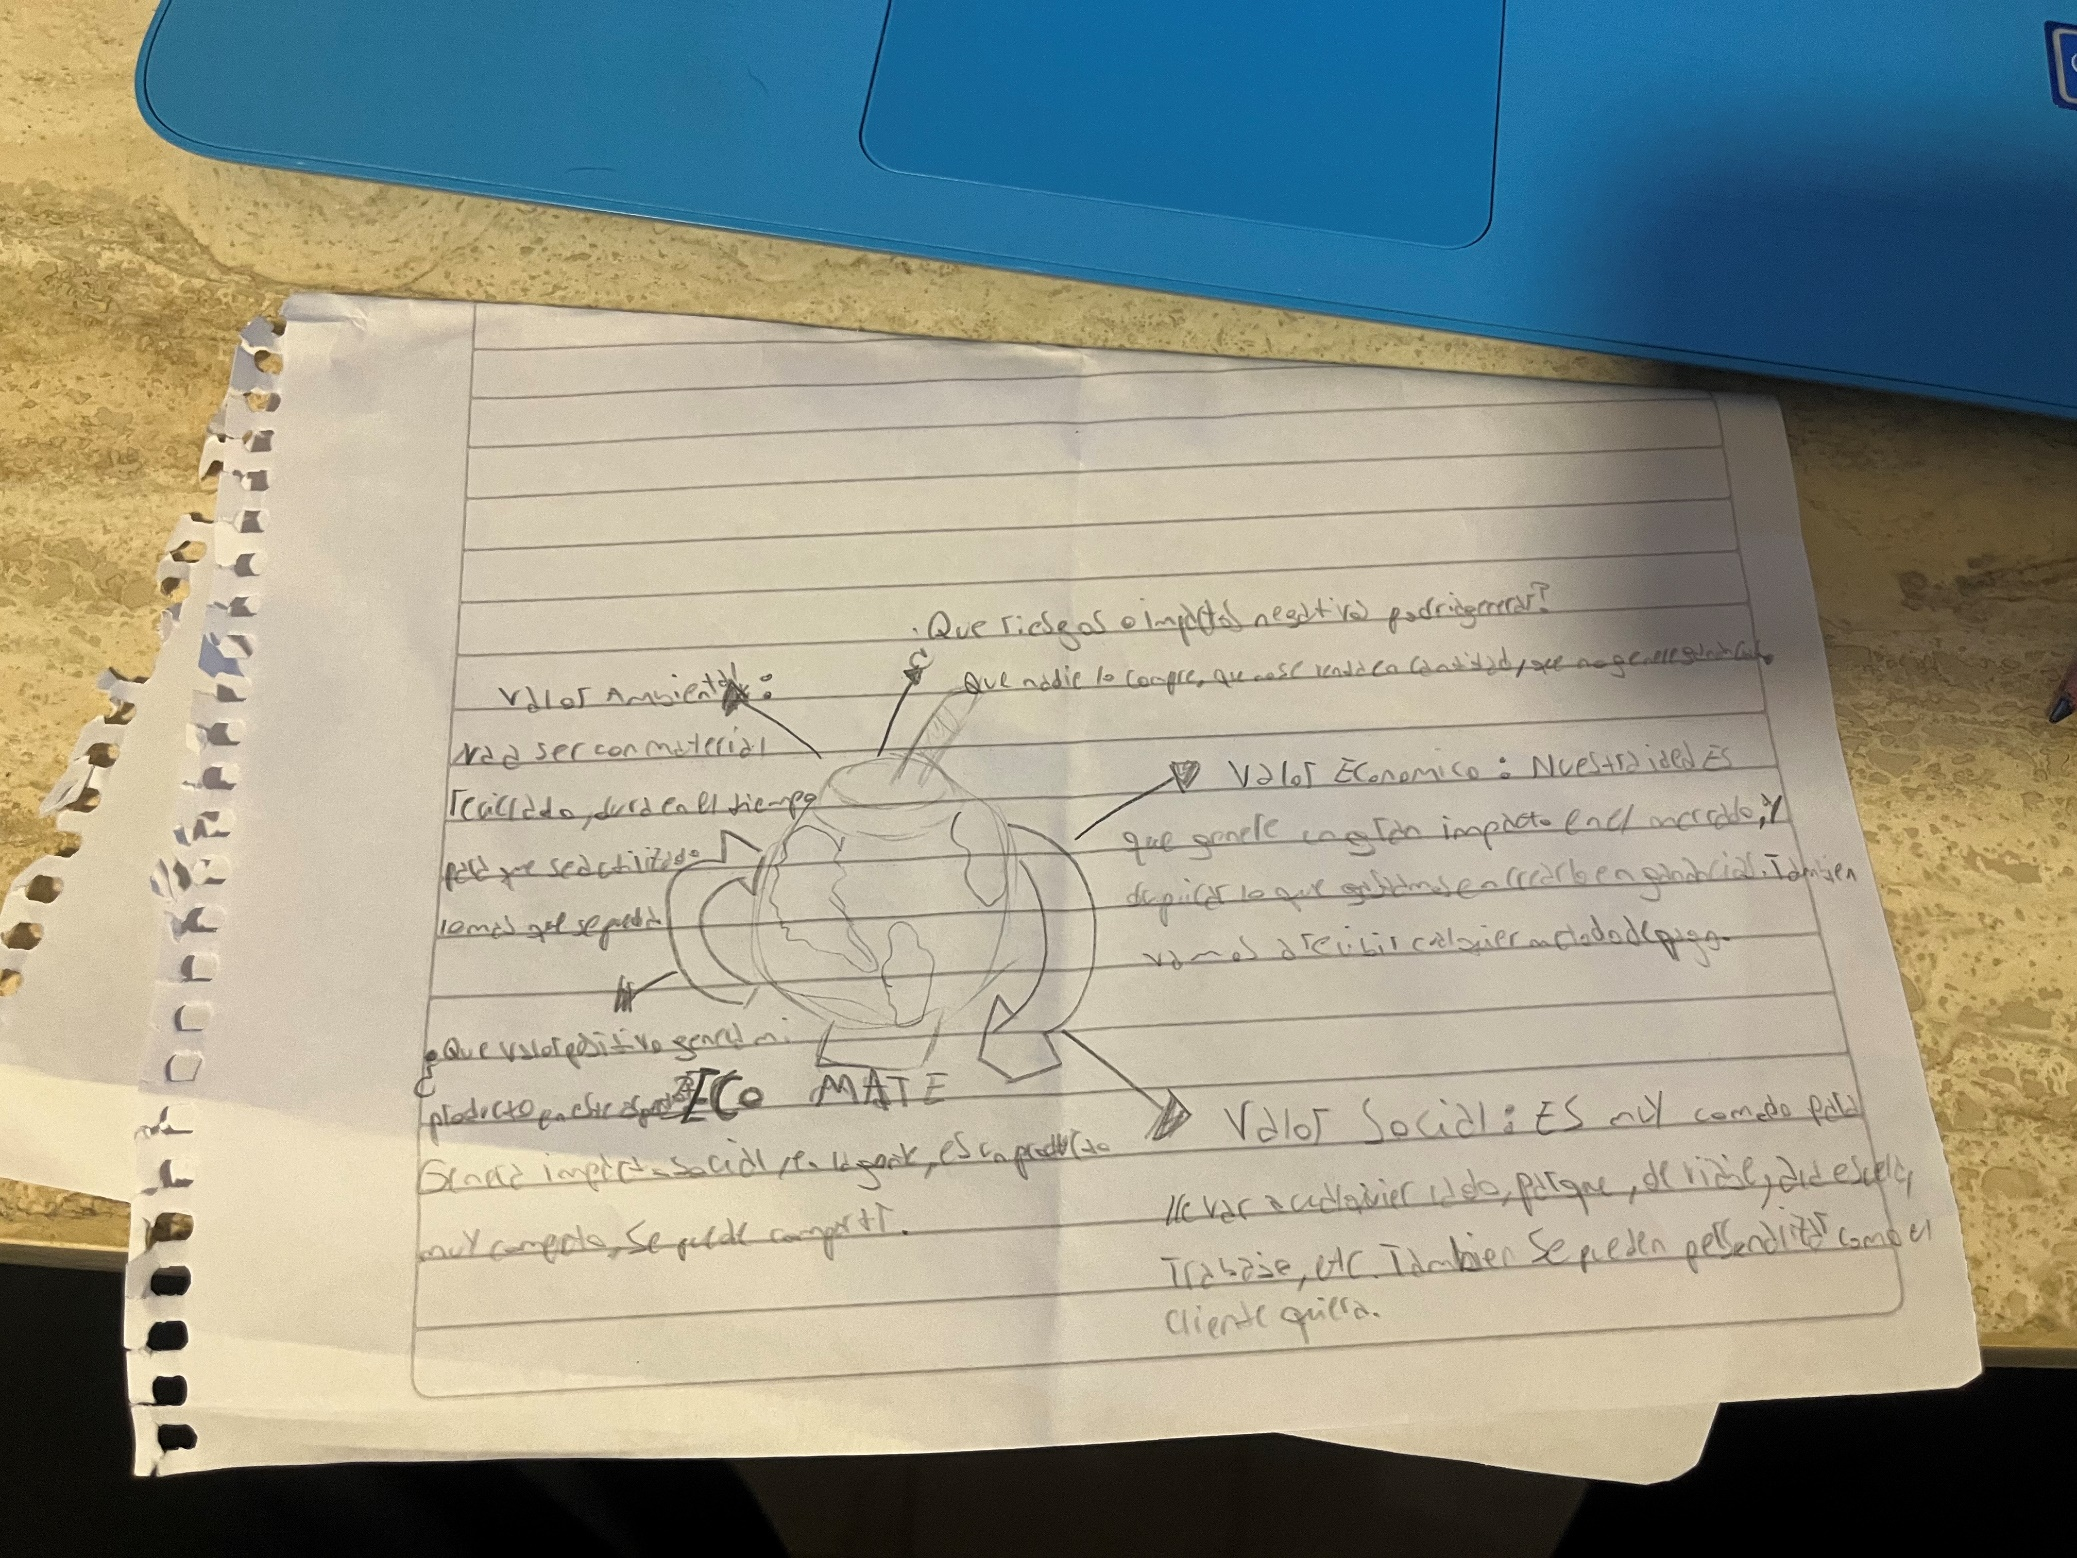 ¿Que riesgos o impactos negativos podria generar?
Que nadie lo compre, que no se venda en cantidad, que no genere ganancia
Valor Ambiental:
Va a ser con material
reciclado, dura en el tiempo
para que sea utilizado
lo mas que se pueda
Valor Economico: Nuestra idea Es
que genere un gran impacto en el mercado, y
duplicar lo que gastamos en crearlo en ganancias. Tambien
vamos a recibir cualquier metodo de pago.
¿Que valor positivo genera mi
producto en este
ECO MATE
Genera impacto social, en la gente, es un producto
muy comodo, Se puede compartir.
Valor Social: ES muy comodo para
llevar a cualquier lado, parque, de viaje, a la escuela,
Trabajo, etc. Tambien Se pueden personalizar como el
cliente quiera.